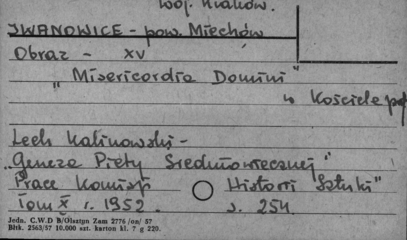 Woj. Kraków.
IWANOWICE - pow. Miechów
Obraz - XV
"Misericordia Domini"
w Kościele
Lech Kalinowski -
"Geneza Piety Średniowiecznej"
Prace Komisji Historii Sztuki"
Tom X r. 1952. s. 254.
Jedn. C.W.D B/Olsztyn Zam 2776 /on/ 57
Bltk. 2563/57 10.000 szt. karton kl. ? g 220.